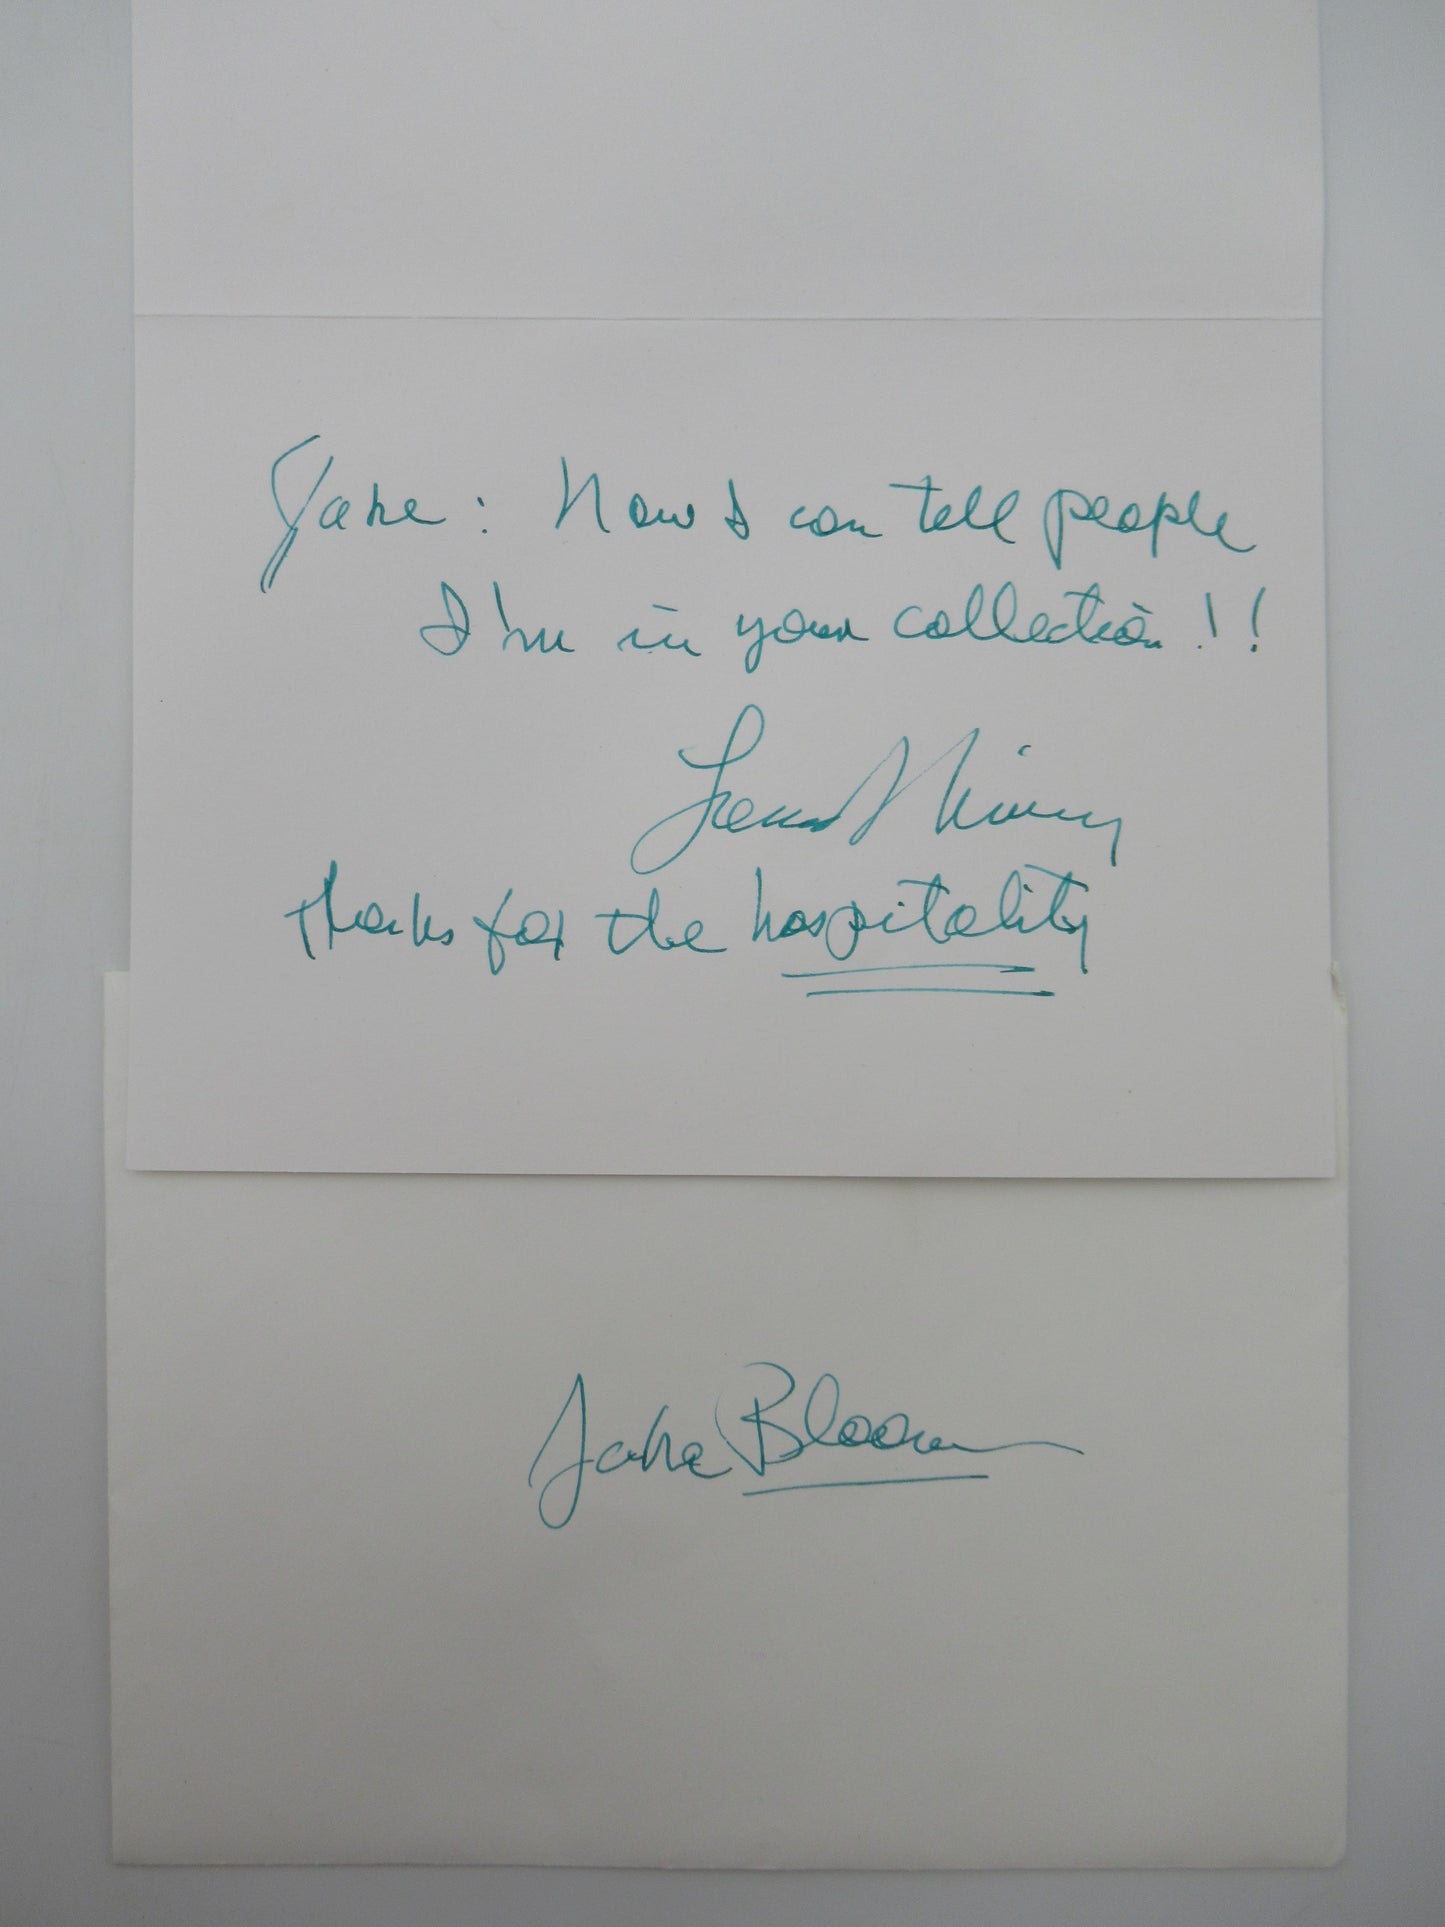 Jake: Now I can tell people
I'm in your collection!!
Leonard Nimoy
thanks for the hospitality
Jake Bloom